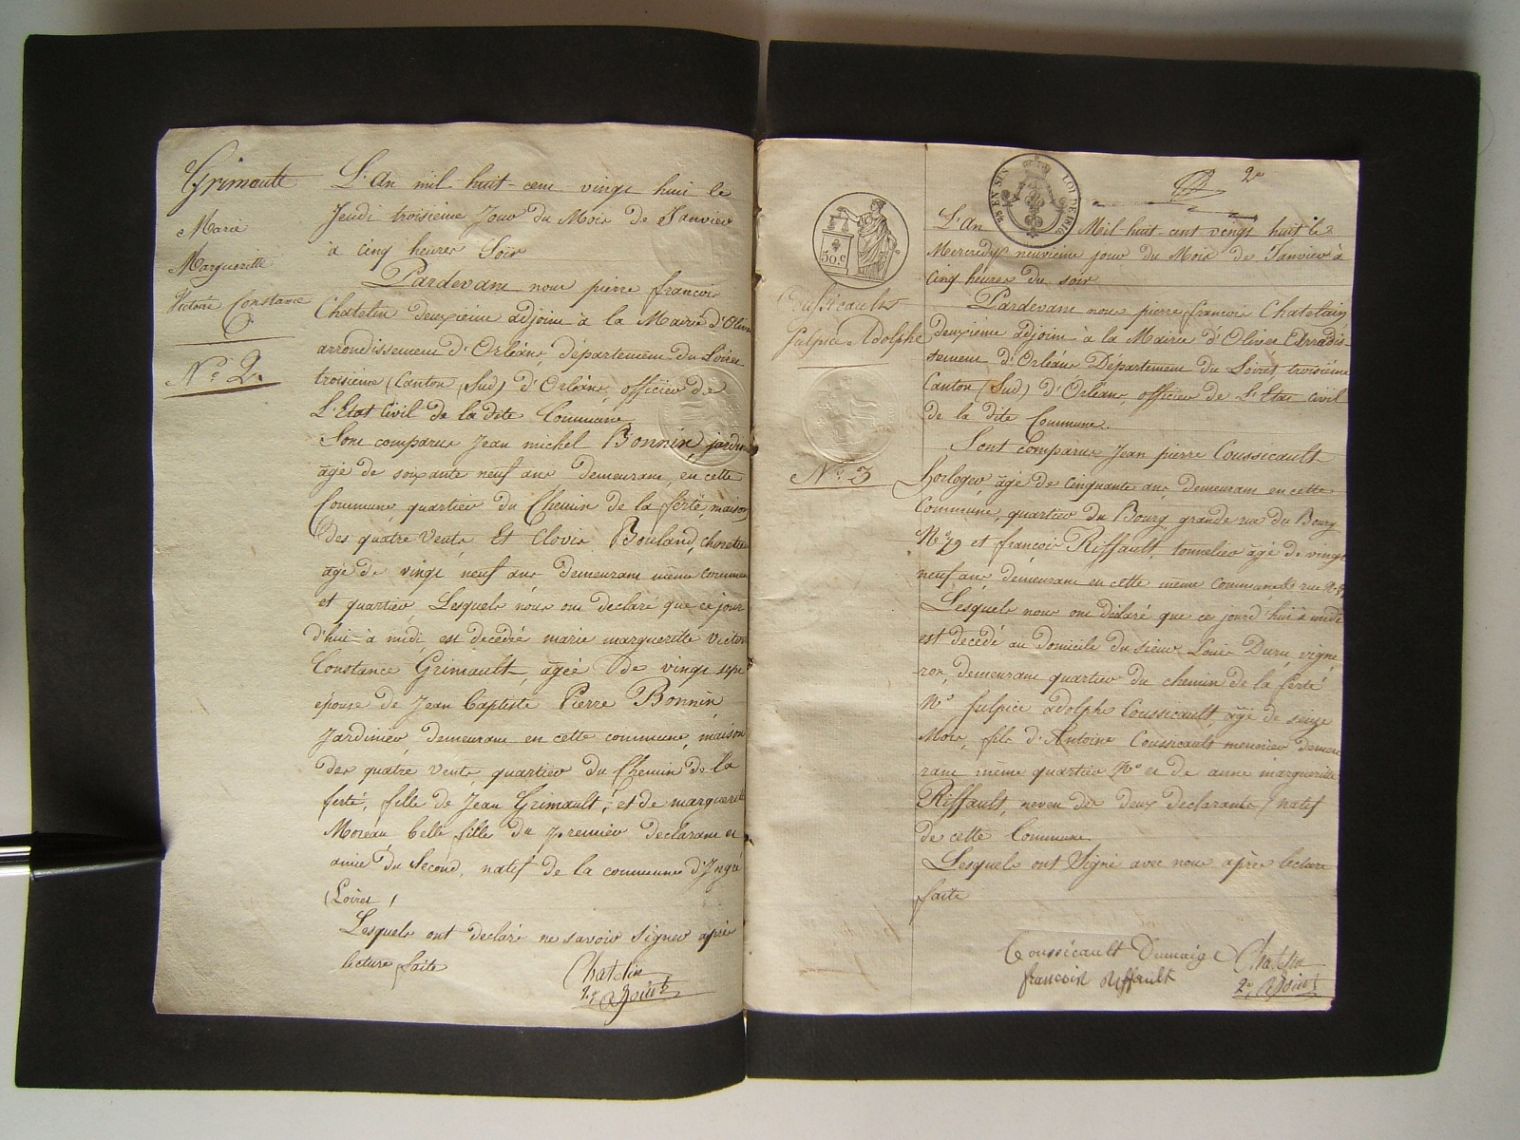 Grimault
Marie
Marguerite
Victoire Constance
N.º 2.
L'An mil huit-cent vingt huit le
Jeudi troisième Jour du Mois de Janvier
à cinq heures Soir
Pardevant nous pierre francois
Chatelin deuxième adjoint à la Mairie d'Olivet
arrondissement d'Orléans département du Loiret
troisième Canton (Sud) d'Orléans, officier de
L'Etat Civil de la dite Commune
Sont comparus Jean michel Bonnin, jardin
âgé de soixante neuf ans demeurant en cette
Commune, quartier du Chemin de la ferté, maison
des quatre Vents Et Clovis Bouland,
âgé de vingt neuf ans demeurant même commune
et quartier Lesquels nous ont declaré que ce jour
d'hui à midi est decedée marie marguerite victoire
Constance Grimault, âgée de vingt sept
épouse de Jean baptiste Pierre Bonnin
Jardinier, demeurant en cette commune, maison
des quatre vents quartier du Chemin de la
ferté, fille de Jean Grimault, et de marguerite
Moreau belle fille du premier declarant et
amie du Second, natif de la commune d'Ingré
(Loiret)
Lesquels ont declaré ne savoir signer après
lecture faite
Chatelin
2e Adjoint
2e
50.c
LOI DE 1816
Coussicault
Sulpice Adolphe
N.º 3
L'An Mil huit cent vingt huit le
Mercredy neuvieme jour du Mois de Janvier à
Cinq heures du soir
Pardevant nous pierre francois Chatelain
deuxième adjoint à la Mairie d'Olivet Arrondis-
sement d'Orléans Département du Loiret troisième
Canton (Sud) d'Orléans, officier de L'Etat Civil
de la dite Commune.
Sont Comparus Jean pierre Coussicault
horloger âgé de Cinquante ans demeurant en cette
Commune, quartier du Bourg grande rue du Bourg
N.º 79 et francois Riffault, tonnelier âgé de vingt
neuf ans, demeurant en cette même commune rue
Lesquels nous ont déclaré que ce jourd'hui à midi
est decédé au domicile du sieur Louis Duru, vigne
ron, demeurant quartier du chemin de la ferté
N.º sulpice adolphe Coussicault, âgé de seize
Mois, fils d'Antoine Coussicault menuisier demeu
rant même quartier N.º et de anne marguerite
Riffault, neveu des deux declarants, natif
de cette Commune
Lesquels ont Signé avec nous après lecture
faite
Coussicault Dumaige
francois Riffault
Chatelin
2e Adjoint